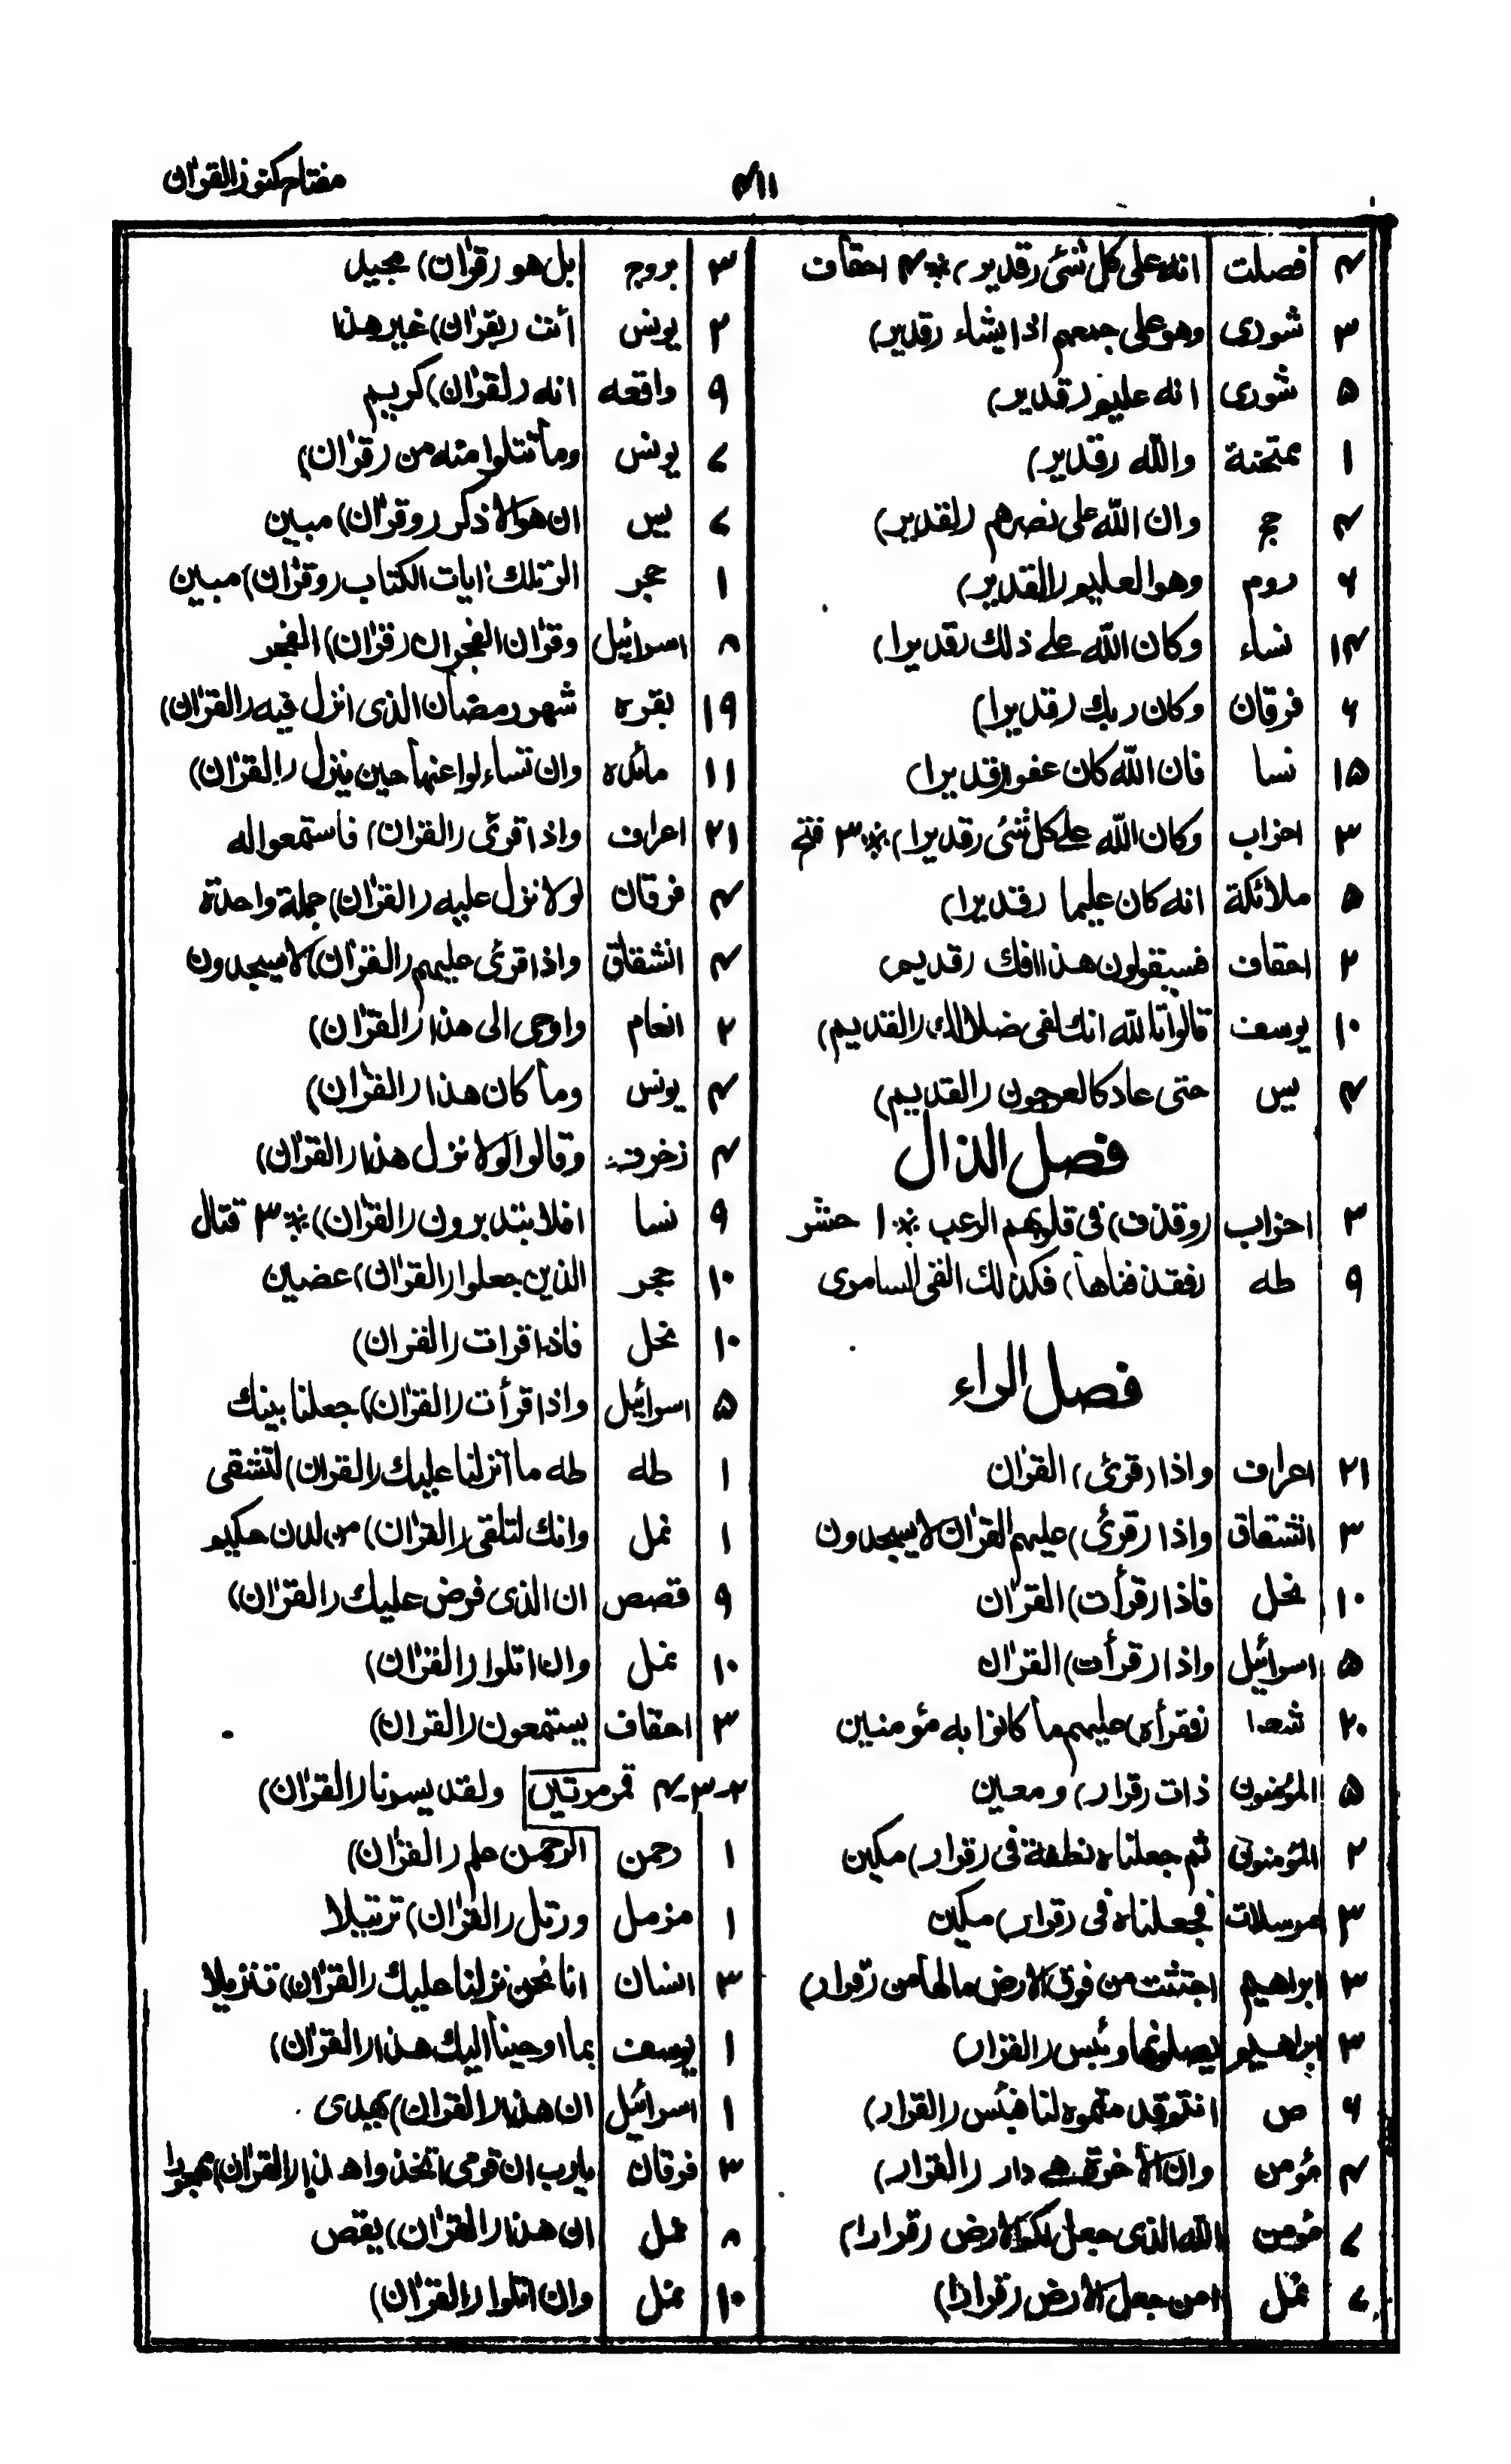 مفتاح كنوز القرآن
۴۱۱
۴ فصلت انه على كل شئ (قدير) ※ ۴ احقاف
۳ شورى وهو على جمعهم اذا يشاء (قدير)
۵ شورى انه عليم (قدير)
۱ ممتحنة والله (قدير)
۴ حج وان الله على نصرهم (لقدير)
۶ روم وهو العليم (القدير)
۱۴ نساء وكان الله على ذلك (قديرا)
۶ فرقان وكان ربك (قديرا)
۱۵ نسا فان الله كان عفوا (قديرا)
۳ احزاب وكان الله على كل شئ (قديرا) ※ ۳ فتح
۵ ملائكة انه كان عليما (قديرا)
۲ احقاف فسيقولون هذا افك (قديم)
۱۰ يوسف قالوا تالله انك لفى ضلالك (القديم)
۴ يس حتى عاد كالعرجون (القديم)
فصل الذال
۳ احزاب (وقذف) فى قلوبهم الرعب ※ ۱ حشر
۹ طه (فقذفناها) فكذلك القى السامرى
فصل الراء
۲۱ اعراف واذا (قرئ) القرآن
۳ انشقاق واذا (قرئ) عليهم القرآن لا يسجدون
۱۰ نحل فاذا (قرأت) القرآن
۵ اسرائيل واذا (قرأت) القرآن
۲۰ شعرا (فقرأه) عليهم ما كانوا به مؤمنين
۵ المؤمنون ذات (قرار) ومعين
۲ المؤمنون ثم جعلناه نطفة فى (قرار) مكين
۳ مرسلات فجعلناه فى (قرار) مكين
۳ ابراهيم اجتثت من فوق الارض مالها من (قرار)
۳ ابراهيم يصلونها وبئس (القرار)
۶ ص انتم قدمتموه لنا فبئس (القرار)
۴ مؤمن وان الآخرة هى دار (القرار)
۷ مؤمن الله الذى جعل لكم الارض (قرارا)
۷ نمل امن جعل الارض (قرارا)
۳ بروج بل هو (قرآن) مجيد
۲ يونس أئت (بقرآن) غير هذا
۹ واقعه انه (لقرآن) كريم
۷ يونس وما تتلوا منه من (قرآن)
۷ يس ان هو الا ذكر (وقرآن) مبين
۱ حجر الر تلك آيات الكتاب (وقرآن) مبين
۸ اسرائيل وقرآن الفجر ان (قرآن) الفجر
۱۹ بقره شهر رمضان الذى انزل فيه (القرآن)
۱۱ مائده وان تساءلوا عنها حين ينزل (القرآن)
۲۱ اعراف واذا قرئ (القرآن) فاستمعوا له
۴ فرقان لولا نزل عليه (القرآن) جملة واحدة
۴ انشقاق واذا قرئ عليهم (القرآن) لا يسجدون
۲ انعام واوحى الى هذا (القرآن)
۴ يونس وما كان هذا (القرآن)
۴ زخرف وقالوا لولا نزل هذا (القرآن)
۹ نسا افلا يتدبرون (القرآن) ※ ۳ قتال
۱۰ حجر الذين جعلوا (القرآن) عضين
۱۰ نحل فاذا قرات (القرآن)
۵ اسرائيل واذا قرأت (القرآن) جعلنا بينك
۱ طه طه ما أنزلنا عليك (القرآن) لتشقى
۱ نمل وانك لتلقى (القرآن) من لدن حكيم
۹ قصص ان الذى فرض عليك (القرآن)
۱۰ نمل وان اتلوا (القرآن)
۳ احقاف يستمعون (القرآن)
۲-۳-۴ قمر مرتين ولقد يسرنا (القرآن)
۱ رحمن الرحمن علم (القرآن)
۱ مزمل ورتل (القرآن) ترتيلا
۳ انسان انا نحن نزلنا عليك (القرآن) تنزيلا
۱ يوسف بما اوحينا اليك هذا (القرآن)
۱ اسرائيل ان هذا (القرآن) يهدى
۳ فرقان يارب ان قومى اتخذوا هذا (القرآن) مهجورا
۸ نمل ان هذا (القرآن) يقص
۱۰ نمل وان اتلوا (القرآن)